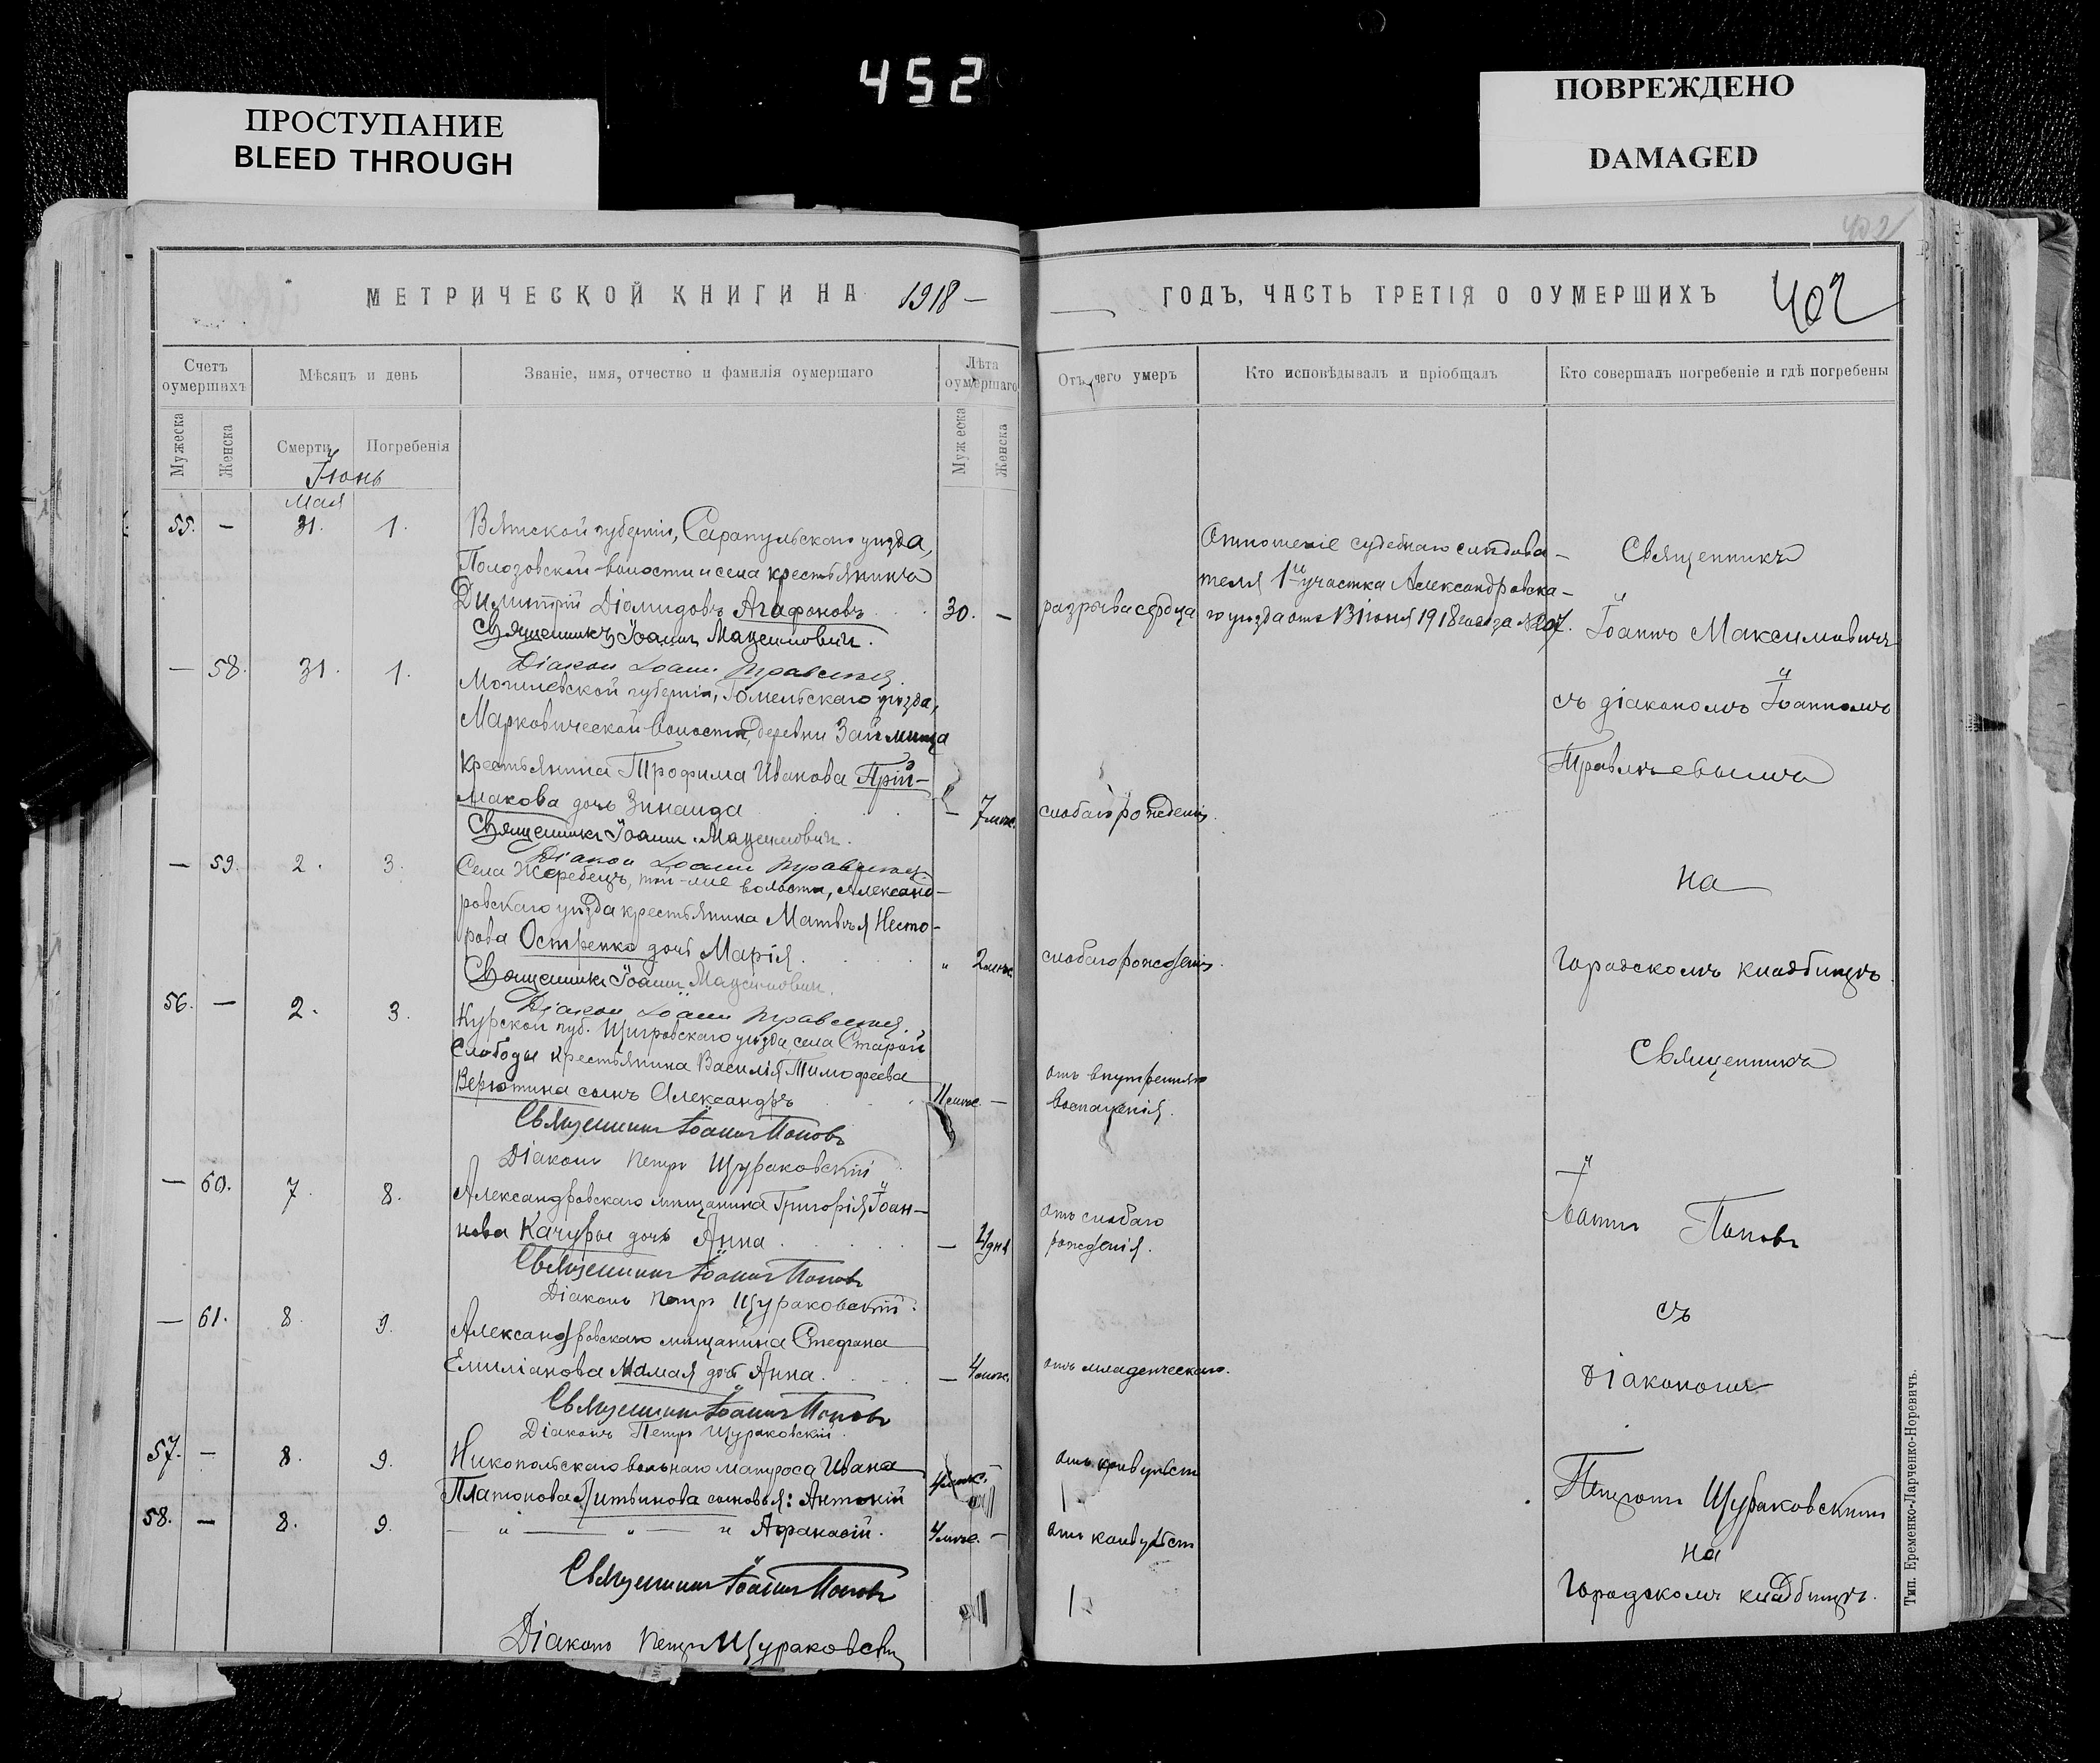 452
ПРОСТУПАНИЕ
BLEED THROUGH
ПОВРЕЖДЕНО
DAMAGED
МЕТРИЧЕСКОЙ КНИГИ НА 1918 —
Счетъ оумершихъ
Мѣсяцъ и день
Званіе, имя, отчество и фамилія оумершаго
Лѣта оумершаго
Мужеска
Женска
Смерти
Погребенія
Муж еска
Женска
Іюнь
Мая
55. — 31. 1. Вятской губерніи, Сарапульскаго уѣзда,
Полозовской волости и села крестьянинъ
Димитрій Діомидовъ Агафоновъ . . 30. —
Священникъ Іоаннъ Максимовичъ.
Діакон Іоанн Правенькій.
— 58. 31. 1. Могилевской губерніи, Гомельскаго уѣзда,
Марковической волости, деревни Займища
крестьянина Трофима Иванова Прій-
макова дочь Зинаида — 7 мѣс.
Священникъ Іоаннъ Максимовичъ.
Діакон Іоанн
— 59. 2. 3. Села Жеребецъ, той-же волости, Александ-
ровскаго уѣзда крестьянина Матвѣя Несто-
рова Остренко дочь Марія. " 2 мѣс.
Священникъ Іоаннъ Максимовичъ.
Діакон Іоанн
56. — 2. 3. Курской губ. Щигровскаго уѣзда, села Старой
Слободы крестьянина Василія Тимофеева
Верютина сынъ Александръ 11 мѣс. —
Священникъ Іоаннъ Поповъ
Діаконъ Петръ Щураковскій
— 60. 7. 8. Александровскаго мѣщанина Григорія Іоан-
нова Качуры дочь Анна — 4 дня
Священникъ Іоаннъ Поповъ
Діаконъ Петръ Щураковскій.
— 61. 8. 9. Александровскаго мѣщанина Стефана
Емиліанова Мамая дочь Анна. — 4 мѣс.
Священникъ Іоаннъ Поповъ
Діаконъ Петръ Щураковскій.
57. — 8. 9. Никопольскаго вольнаго матроса Ивана
Платонова Литвинова сыновья: Антоній 4 мѣс.
58. — 8. 9. — " — " — " Афанасій. 4 мѣс. —
Священникъ Іоаннъ Поповъ
Діаконъ Петръ Щураковскій
402
ГОДЪ, ЧАСТЬ ТРЕТІЯ О ОУМЕРШИХЪ
402
Отъ чего умеръ
Кто исповѣдывалъ и пріобщалъ
Кто совершалъ погребеніе и гдѣ погребены
разрыва сердца
слабаго рожденія.
слабаго рожденія.
отъ внутренняго
воспаленія.
отъ слабаго
рожденія.
отъ младенческаго.
отъ конвульсіи
отъ конвульсіи
Отношеніе судебнаго слѣдова-
теля 1го участка Александровска-
го уѣзда отъ 1918 года за № 207.
Священникъ
Іоаннъ Максимовичъ
съ діакономъ Іоанномъ
на
городскомъ кладбищѣ.
Священникъ
Іоаннъ Поповъ
съ
діакономъ
Петромъ Щураковскимъ
на
городскомъ кладбищѣ.
Тип. Еременко-Ларченко-Норевичъ.